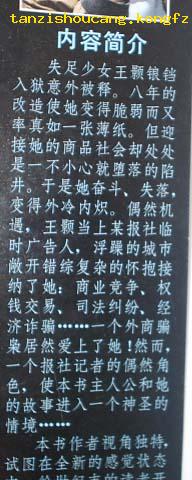 tanzishoucang.kongfz
内容简介
失足少女王颗锒铛
入狱意外被释。八年的
改造使她变得脆弱而又
率真如一张薄纸。但迎
接她的商品社会却处处
是一不小心就堕落的陷
井。于是她奋斗、失落,
变得外冷内炽。偶然机
遇，王颗当上某报社临
时广告人，浮躁的城市
敞开错综复杂的怀抱接
纳了她：商业竞争、权
钱交易、司法纠纷、经
济诈骗……一个外商骗
枭居然爱上了她！然而,
一个报社记者的偶然角
色，使本书主人公和她
的故事进入一个神圣的
情境……
本书作者视角独特,
试图在全新的感觉状态